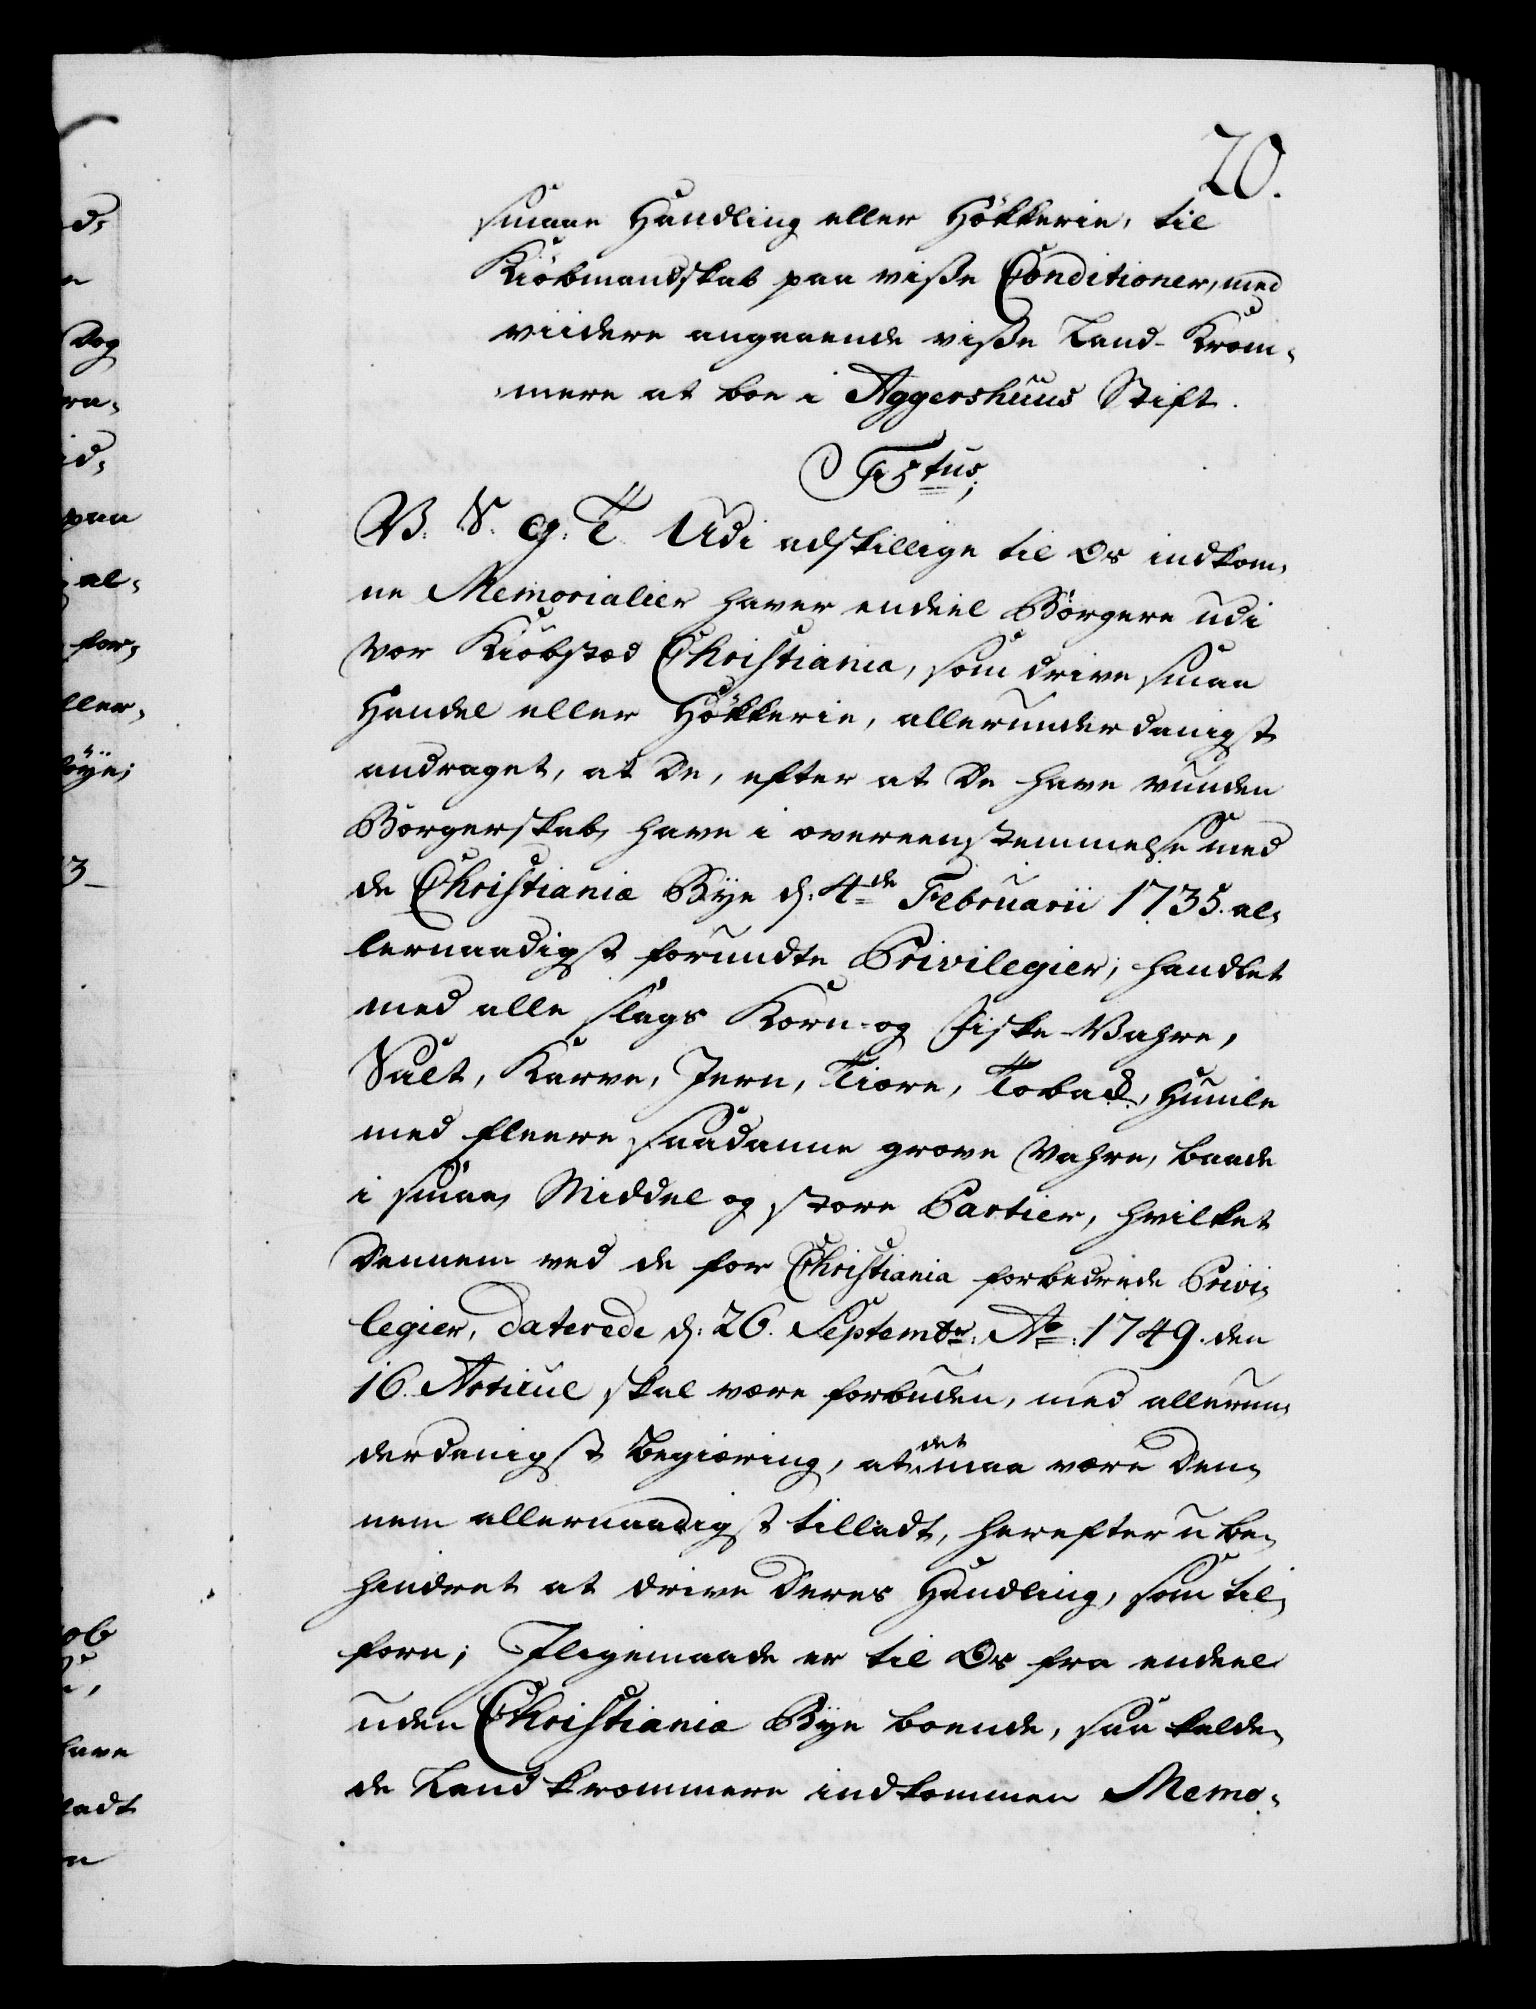 20.
smaae Handling eller Høkkerie, til
Kiøbmandskab paa visse Conditioner, med
viidere angaaende visse Land-Kræm-
mere at boe i Aggershuus Stift.
F 5tus,
V. S. G. T. Udi adskillige til Os indkom-
ne Memorialier haver endeel Borgere udi
Vor Kiøbstæd Christiania, som drive smaa
Handel eller Høkkerie, allerunderdanigst
andraget, at De, efter at De have vunden
Borgerskab, have i overeenstemmelse med
de Christianiæ Bye d: 4de Februarii 1735. al-
lernaadigst forundte Privilegier, handlet
med alle slags Korn- og Fiske-Vahre,
Salt, Karve, Jern, Tiære, Toback, Humle
med fleere saadanne grove Vahre, baade
i smaae, Middel og store Partier, hvilket
Dennem ved de for Christiania forbedrede Privi-
legier, daterede d: 26. Septembr: Ao: 1749. den
16. Articul skal være forbuden, med allerun-
derdanigst Begiæring, at det maa være Den-
nem allernaadigst tilladt, herefter ube-
hindret at drive Deres Handling, som til-
forn; Jligemaade er til Os fra endeel
uden Christianiæ Bye boende, saa kalde-
de Landkræmmere indkommen Memo-